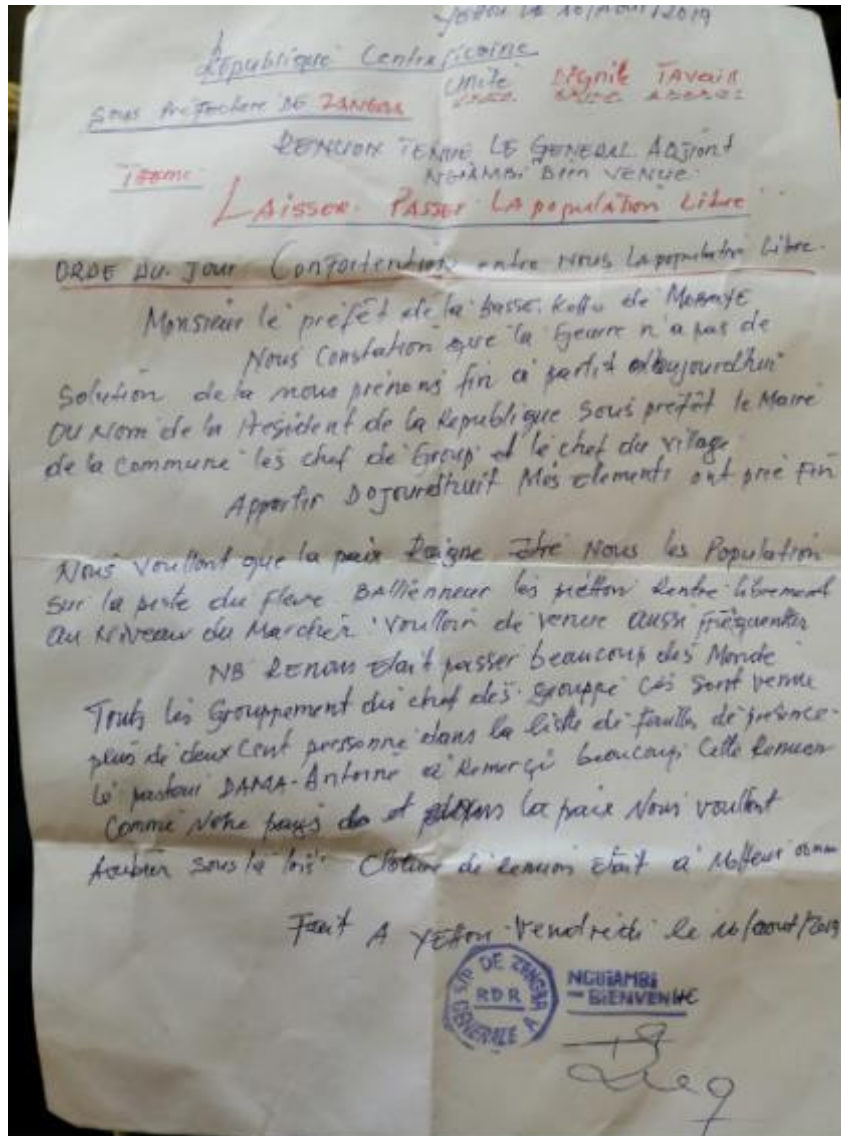 Yetton le 16/Aout/2019
République Centraficaine
Unité Dignité Tavair
Sous Préfecture DE ZANGBA
REMUION TENUE LE GENERAL Adjoint
NGIAMBI Bien VENUE
Teeme
LAisser PASSER LA population Libre
ORDE du Jour entre Nous La population Libre.
Monsieur le préfét de la Basse Kotto de MOBAYE
Nous Constation que la Geurre n'a pas de
Solution de la nous prénons fin a partit daujourdhui
OU Nom de la President de la Republique Sous préfét le Maire
de la Commune les chef de Group et le chef du village
Appartir Dojourdhuit Més elements ont prie Fin
Nous Voullont que la paix Raigne Nous les Population
Sur la piste du fleve les rentre librement
au Niveau du Marcher voulloir de venue aussi fréquenter
NB Renion etait passer beaucoup des Monde
Touts les Grouppement du chef des grouppe Cés sont venue
plus de deux cent pressonne dans la liste de faulle de présence
Lé pasteur DAMA-Antoine a Remerçi beaucoup Cette Remuion
Comme Notre pays et la paix Nous voullont
sous la lois Cloture de remuion etait à
Fait A Yetton Vendredi le 16/aout/2019
S/P DE ZANGBA
RDR
GENERALE A
NGUIAMBI
BIENVENUE